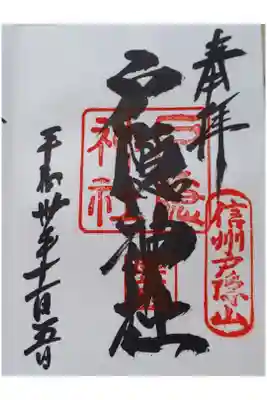 奉拝
信州戸隠山
戸隠神社
戸隠神社
平成卅年十一月五日